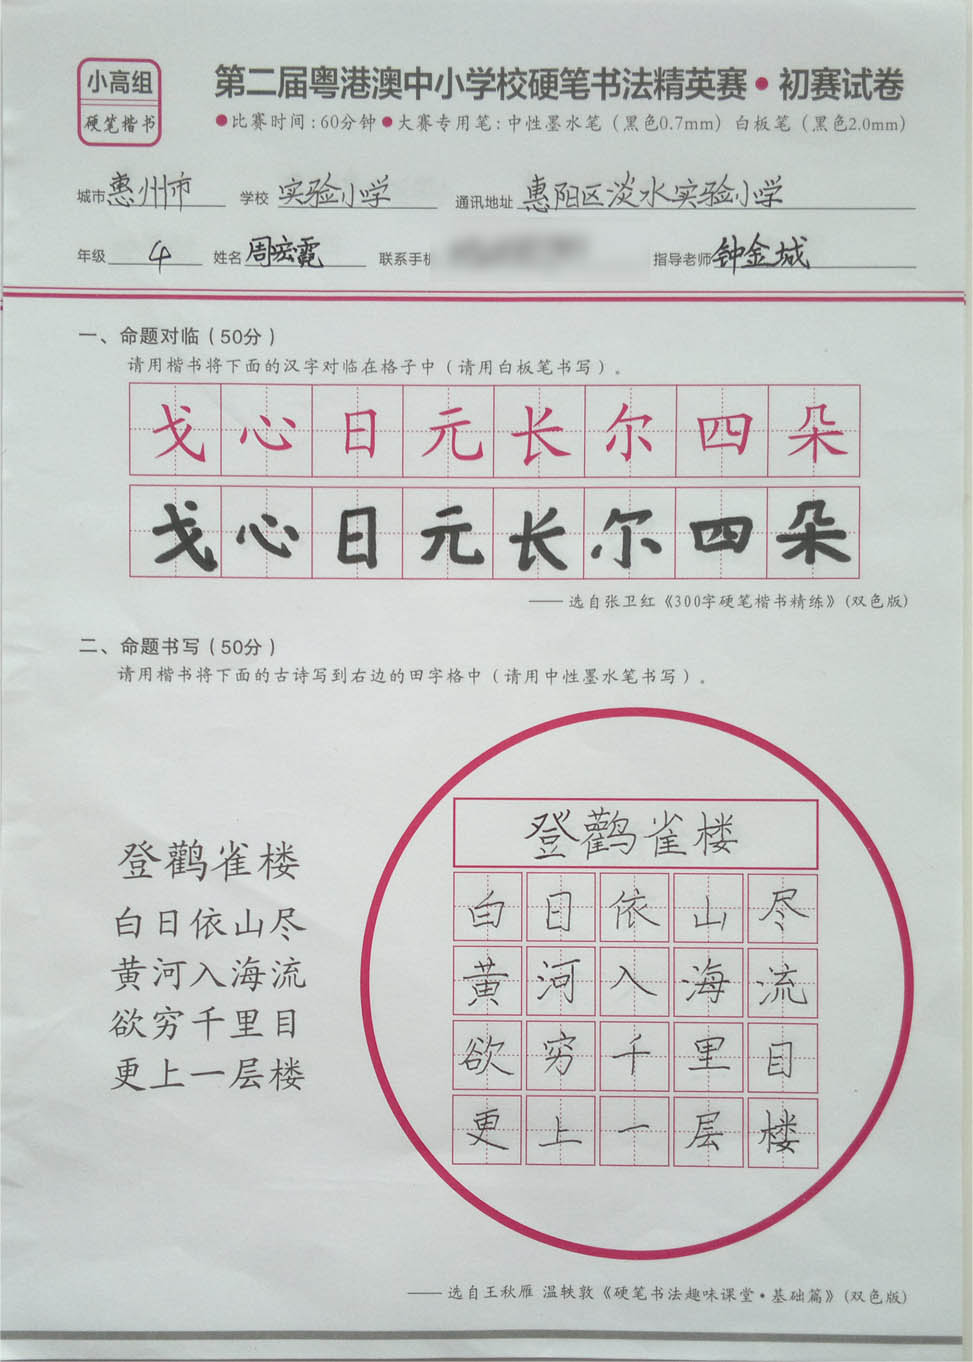 小高组
硬笔楷书
第二届粤港澳中小学校硬笔书法精英赛·初赛试卷
●比赛时间：60分钟●大赛专用笔：中性墨水笔（黑色0.7mm）白板笔（黑色2.0mm）
城市 惠州市 学校 实验小学 通讯地址 惠阳区淡水实验小学
年级 4 姓名 周宏霓 联系手机 指导老师 钟金城
一、命题对临（50分）
请用楷书将下面的汉字对临在格子中（请用白板笔书写）。
戈心日元长尔四朵
戈心日元长尔四朵
—— 选自张卫红《300字硬笔楷书精练》(双色版)
二、命题书写（50分）
请用楷书将下面的古诗写到右边的田字格中（请用中性墨水笔书写）。
登鹳雀楼
白日依山尽
黄河入海流
欲穷千里目
更上一层楼
登鹳雀楼
白日依山尽
黄河入海流
欲穷千里目
更上一层楼
—— 选自王秋雁 温轶敦《硬笔书法趣味课堂·基础篇》(双色版)